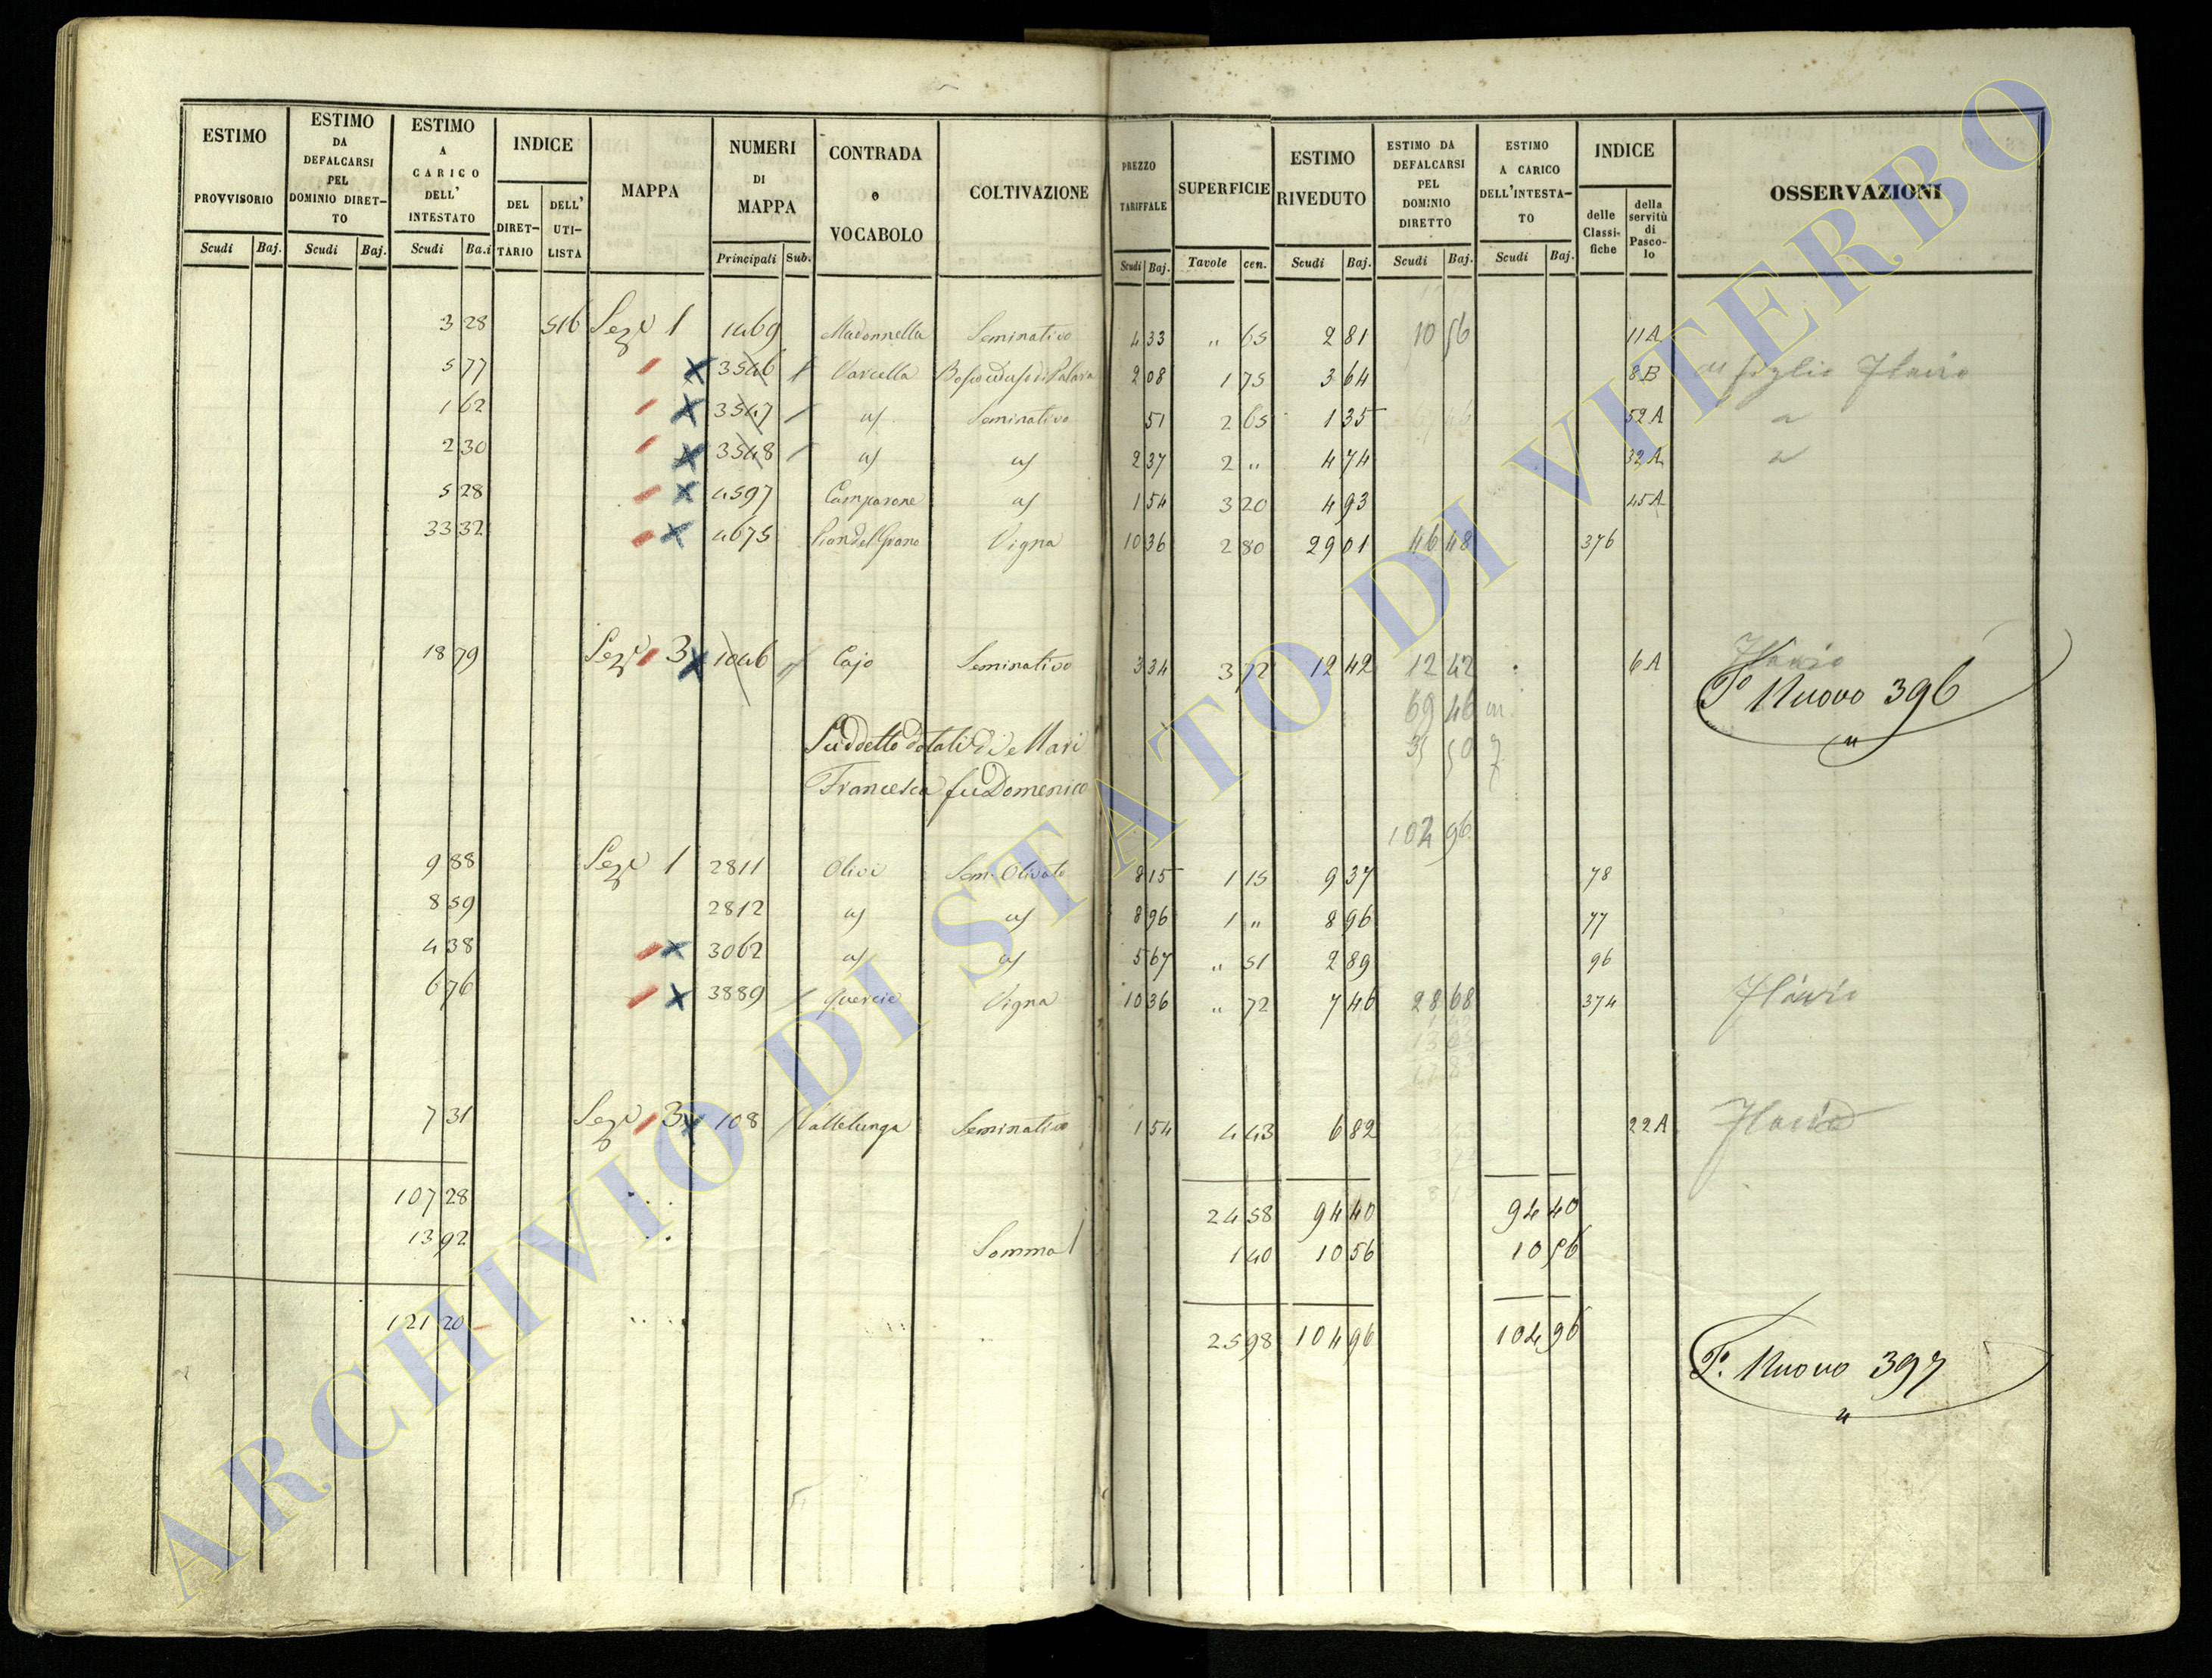 ESTIMO PROVVISORIO Scudi Baj.
ESTIMO DA DEFALCARSI PEL DOMINIO DIRET-TO Scudi Baj.
ESTIMO A CARICO DELL' INTESTATO Scudi Ba.i
INDICE DEL DIRET-TARIO DELL' UTI-LISTA
MAPPA
NUMERI DI MAPPA Principali Sub.
CONTRADA o VOCABOLO
COLTIVAZIONE
PREZZO TARIFFALE Scudi Baj.
SUPERFICIE Tavole cen.
ESTIMO RIVEDUTO Scudi Baj.
ESTIMO DA DEFALCARSI PEL DOMINIO DIRETTO Scudi Baj.
ESTIMO A CARICO DELL'INTESTA-TO Scudi Baj.
INDICE delle Classi-fiche della servitù di Pasco-lo
OSSERVAZIONI
3 28 516 Seze 1 1469 Madonnella Seminativo 4 33 " 65 2 81 10 56 11A
5 77 3546 Varcella 2 08 1 75 3 64 8B figlio Flavio
1 62 3547 id Seminativo 51 2 65 1 35 52A
2 30 3548 id id 2 37 2 " 4 74 32A
5 28 4597 Camparone id 1 54 3 20 4 93 45A
33 32 4675 Pian del Grano Vigna 10 36 2 80 29 01 46 48 376
18 79 Seze 3 1046 Cajo Seminativo 3 34 3 72 12 42 12 42 6A Flavio
69 46 P.o Nuovo 396
Suddetto dotali di Mari 35 50
Francesca fu Domenico
104 96
9 88 Seze 1 2811 Olivi Sem. Olivato 8 15 1 15 9 37 78
8 59 2812 id id 8 96 1 " 8 96 77
4 38 3062 id id 5 67 " 51 2 89 96
6 76 3889 Quercie Vigna 10 36 " 72 7 46 28 68 374 Flavio
7 31 Seze 3 108 Vallelunga Seminativo 1 54 4 43 6 82 22A Flavio
107 28 24 58 94 40 94 40
13 92 Somma 1 40 10 56 10 56
121 20 25 98 104 96 104 96
P. Nuovo 397
ARCHIVIO DI STATO DI VITERBO